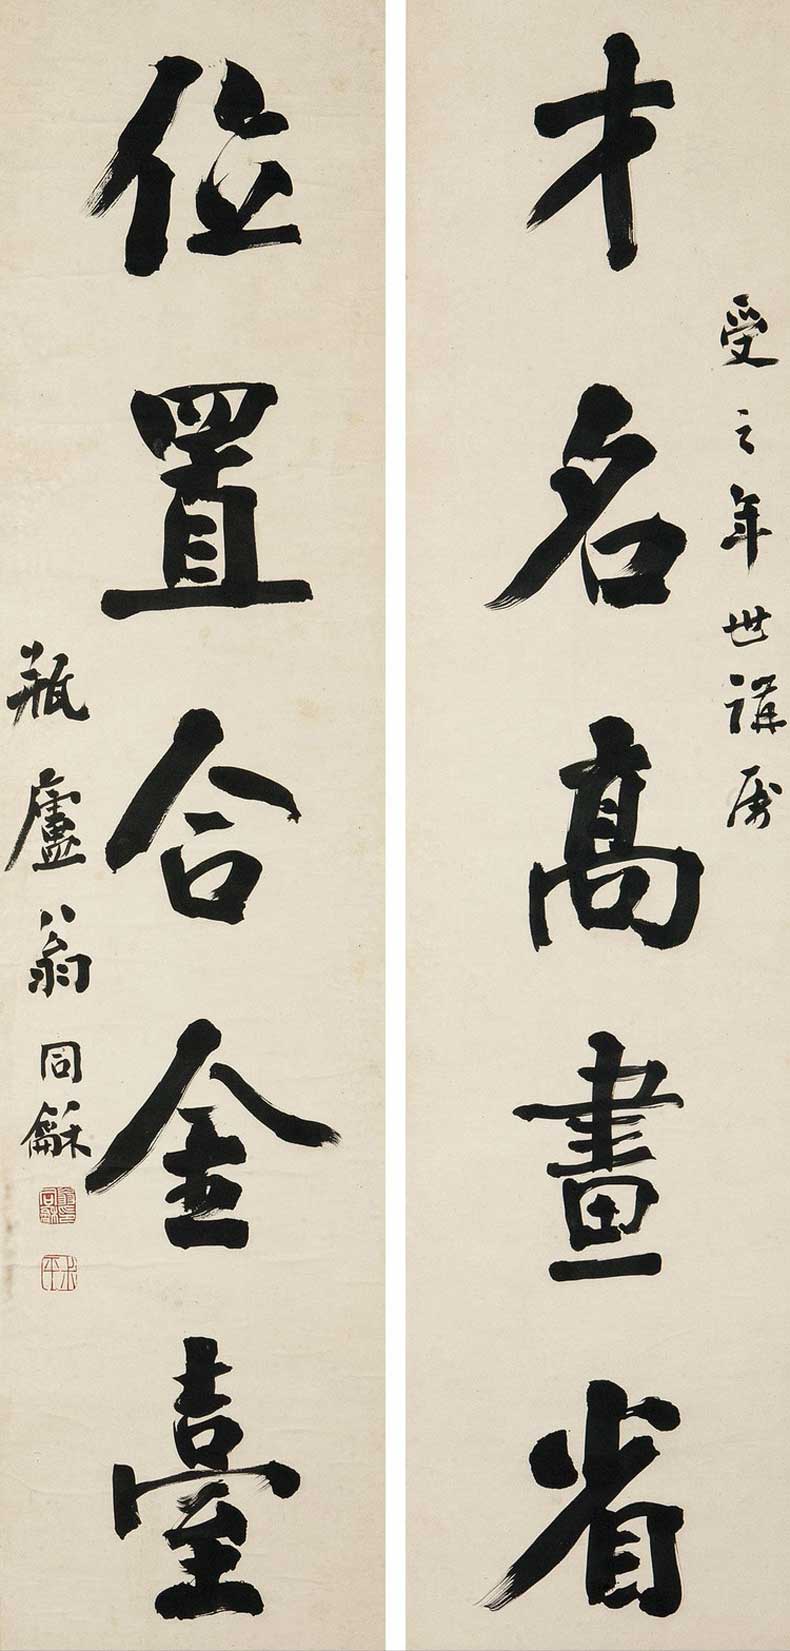 受之年世講屬
才名高畫省
位置合金臺
瓶廬翁同龢